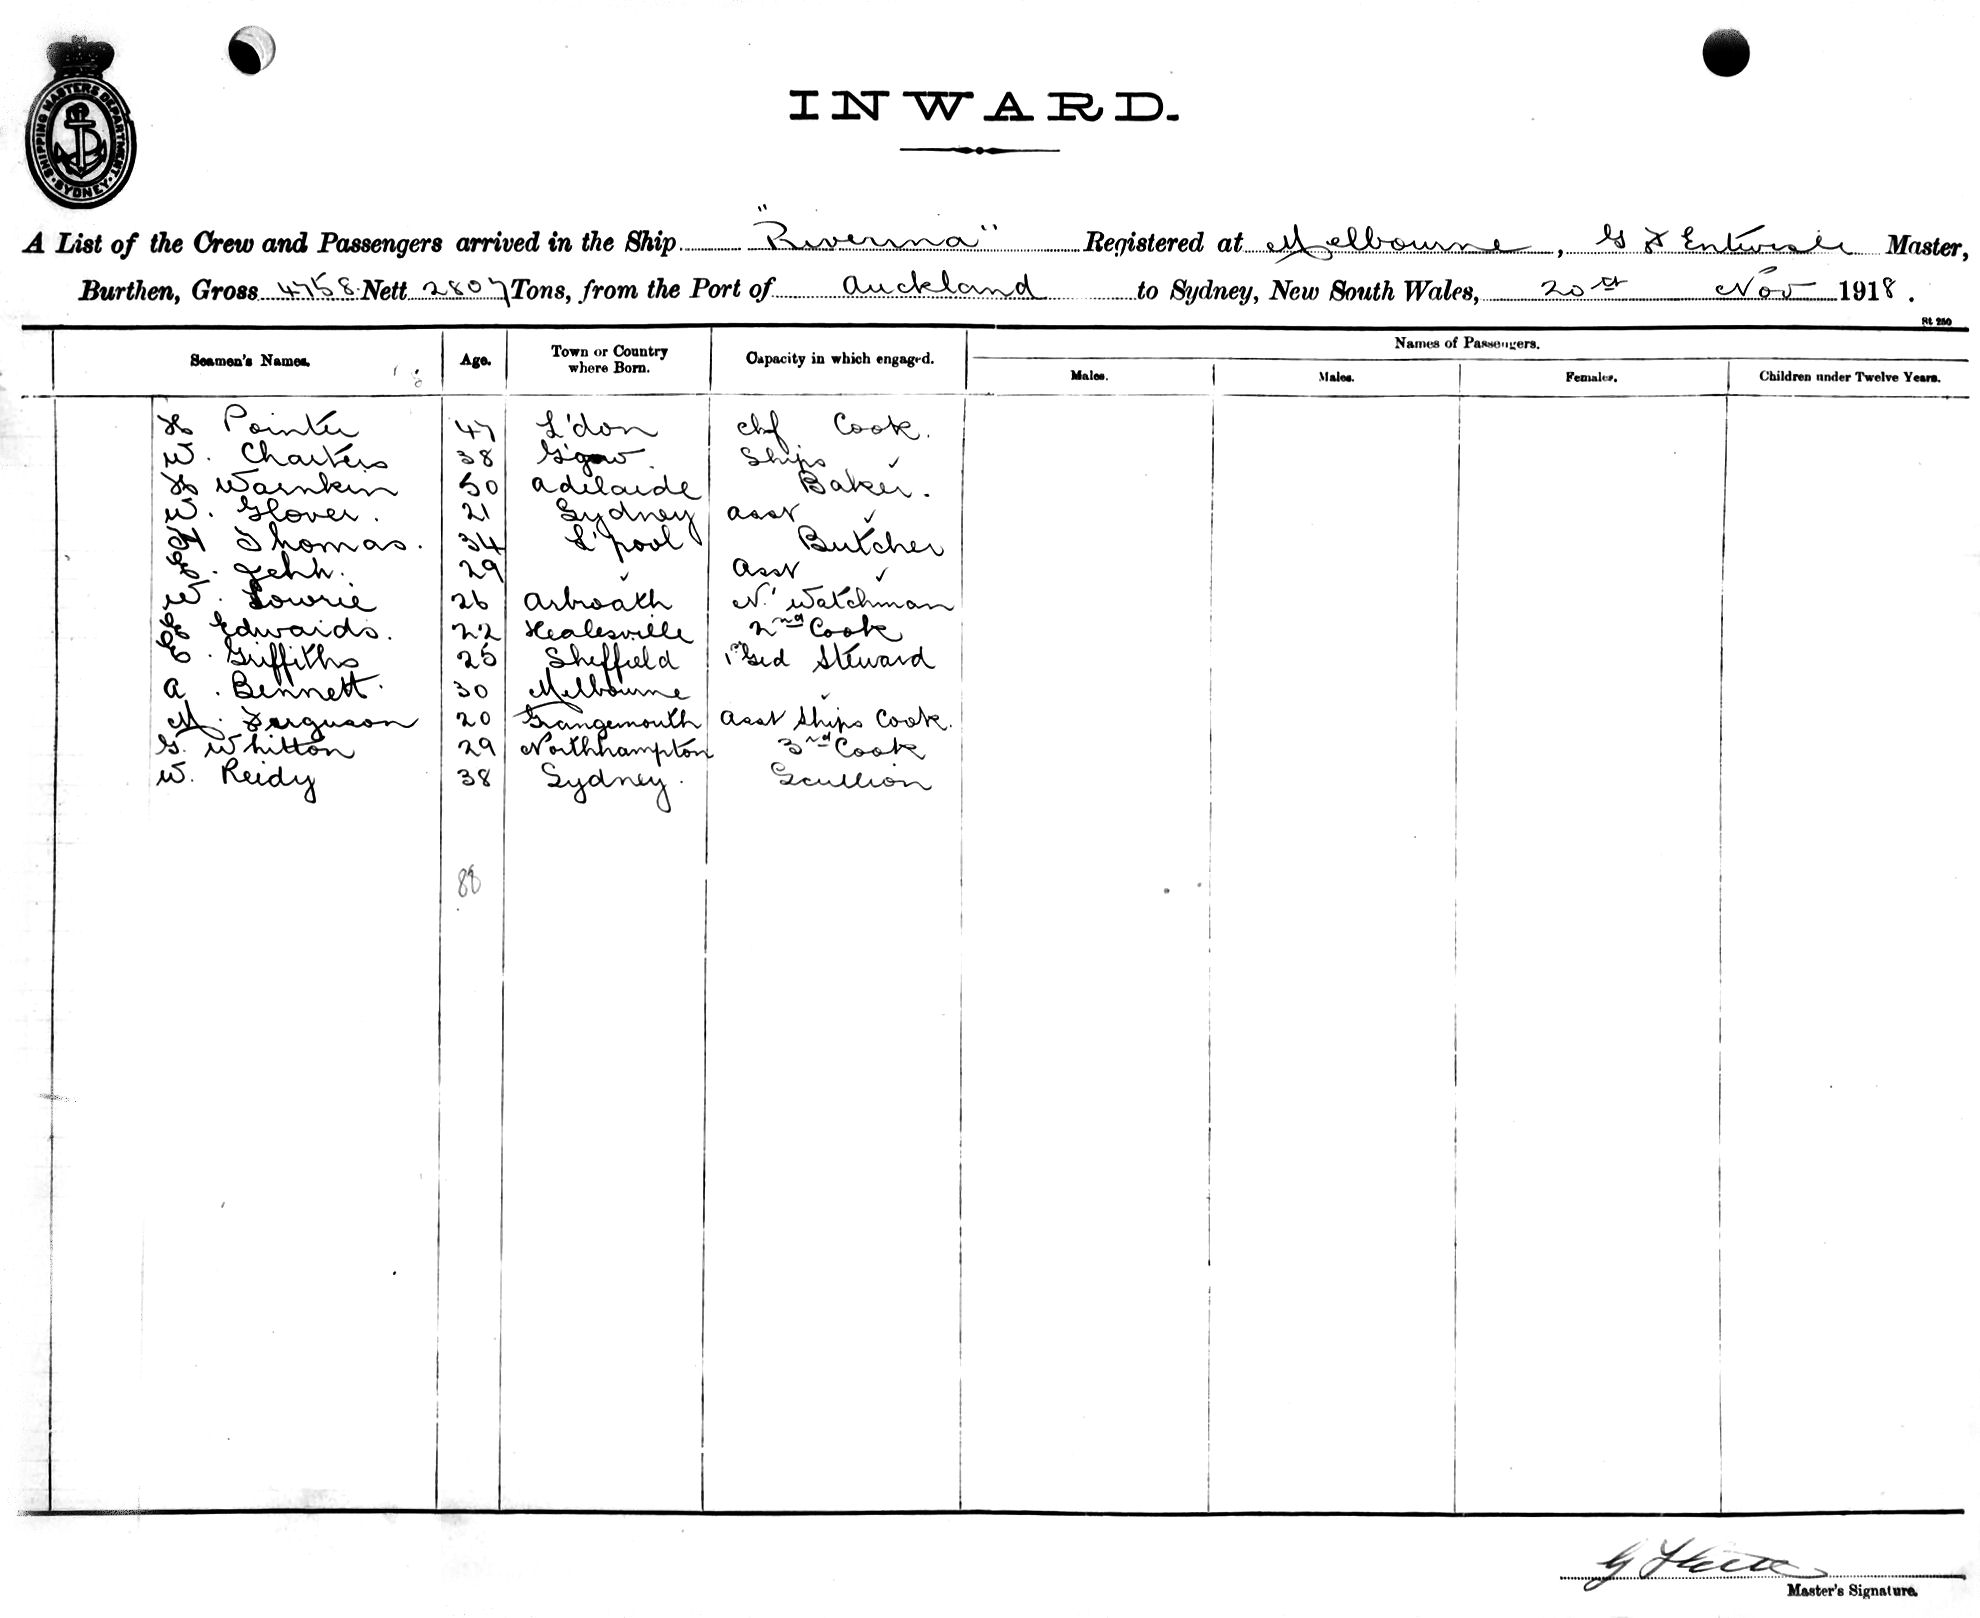 SHIPPING MASTERS DEPARTMENT SYDNEY
INWARD.
A List of the Crew and Passengers arrived in the Ship "Riverina" Registered at Melbourne, G Entwisle Master,
Burthen, Gross 4758 Nett 2807 Tons, from the Port of Auckland to Sydney, New South Wales, 20th Nov 1918.
St 250
Names of Passengers.
Seamen's Names. Age. Town or Country where Born. Capacity in which engaged. Males. Males. Females. Children under Twelve Years.
H Pointer 47 L'don Chf Cook.
W. Charters 38 G'gow. Ships ✓
H Warnken 50 Adelaide Baker.
W. Glover. 21 Sydney Asst ✓
Thomas. 34 L'pool Butcher
29 ✓ Asst ✓
W. Lowrie 26 Arbroath N. Watchman
Edwards. 22 Healesville 2nd Cook
E. Griffiths 25 Sheffield 1st Grd Steward
A. Bennett. 30 Melbourne ✓
M. Ferguson 20 Grangemouth Asst Ships Cook.
G. Whitton 29 Northhampton 3rd Cook
W. Reidy 38 Sydney. Scullion
88
Master's Signature.